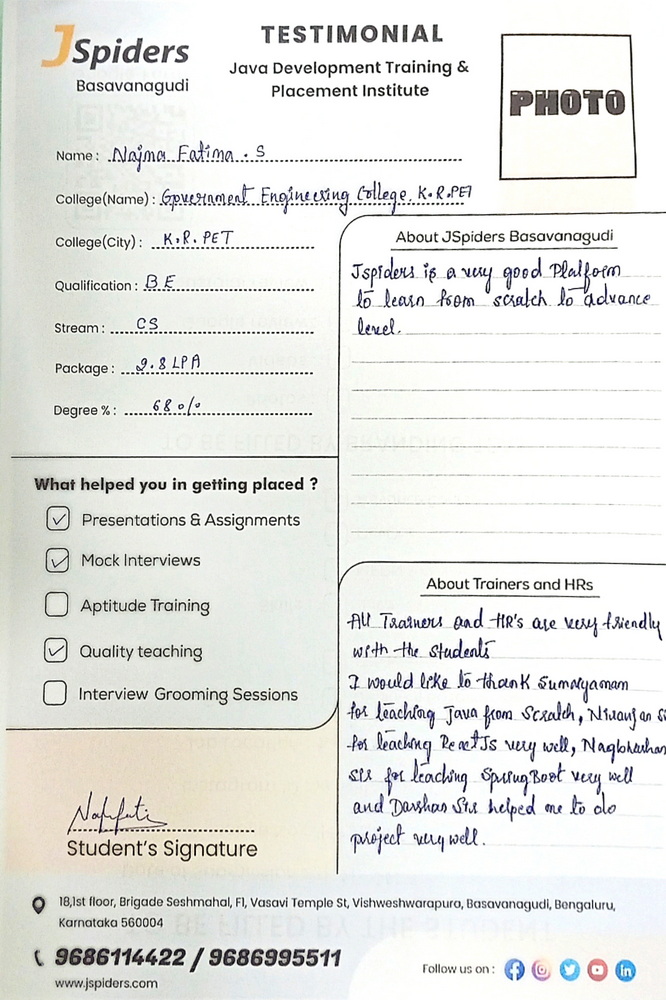 JSpiders
Basavanagudi
TESTIMONIAL
Java Development Training &
Placement Institute
PHOTO
Name : Najma Fatima . S
College(Name) : Government Engineering College, K.R.PET
College(City) : K.R.PET
Qualification : B E
Stream : CS
Package : 2.8 LPA
Degree % : 68 %
What helped you in getting placed ?
Presentations & Assignments
Mock Interviews
Aptitude Training
Quality teaching
Interview Grooming Sessions
Student's Signature
About JSpiders Basavanagudi
Jspiders is a very good Platform
to learn from scratch to advance
level.
About Trainers and HRs
All Trainers and HR's are very friendly
with the students
I would like to thank
for teaching Java from Scratch, Niranjan
for leaching React Js very well,
sir for teaching SpringBoot very well
and Darshan Sir helped me to do
project very well.
18,1st floor, Brigade Seshmahal, F1, Vasavi Temple St, Vishweshwarapura, Basavanagudi, Bengaluru,
Karnataka 560004
9686114422 / 9686995511
www.jspiders.com
Follow us on :